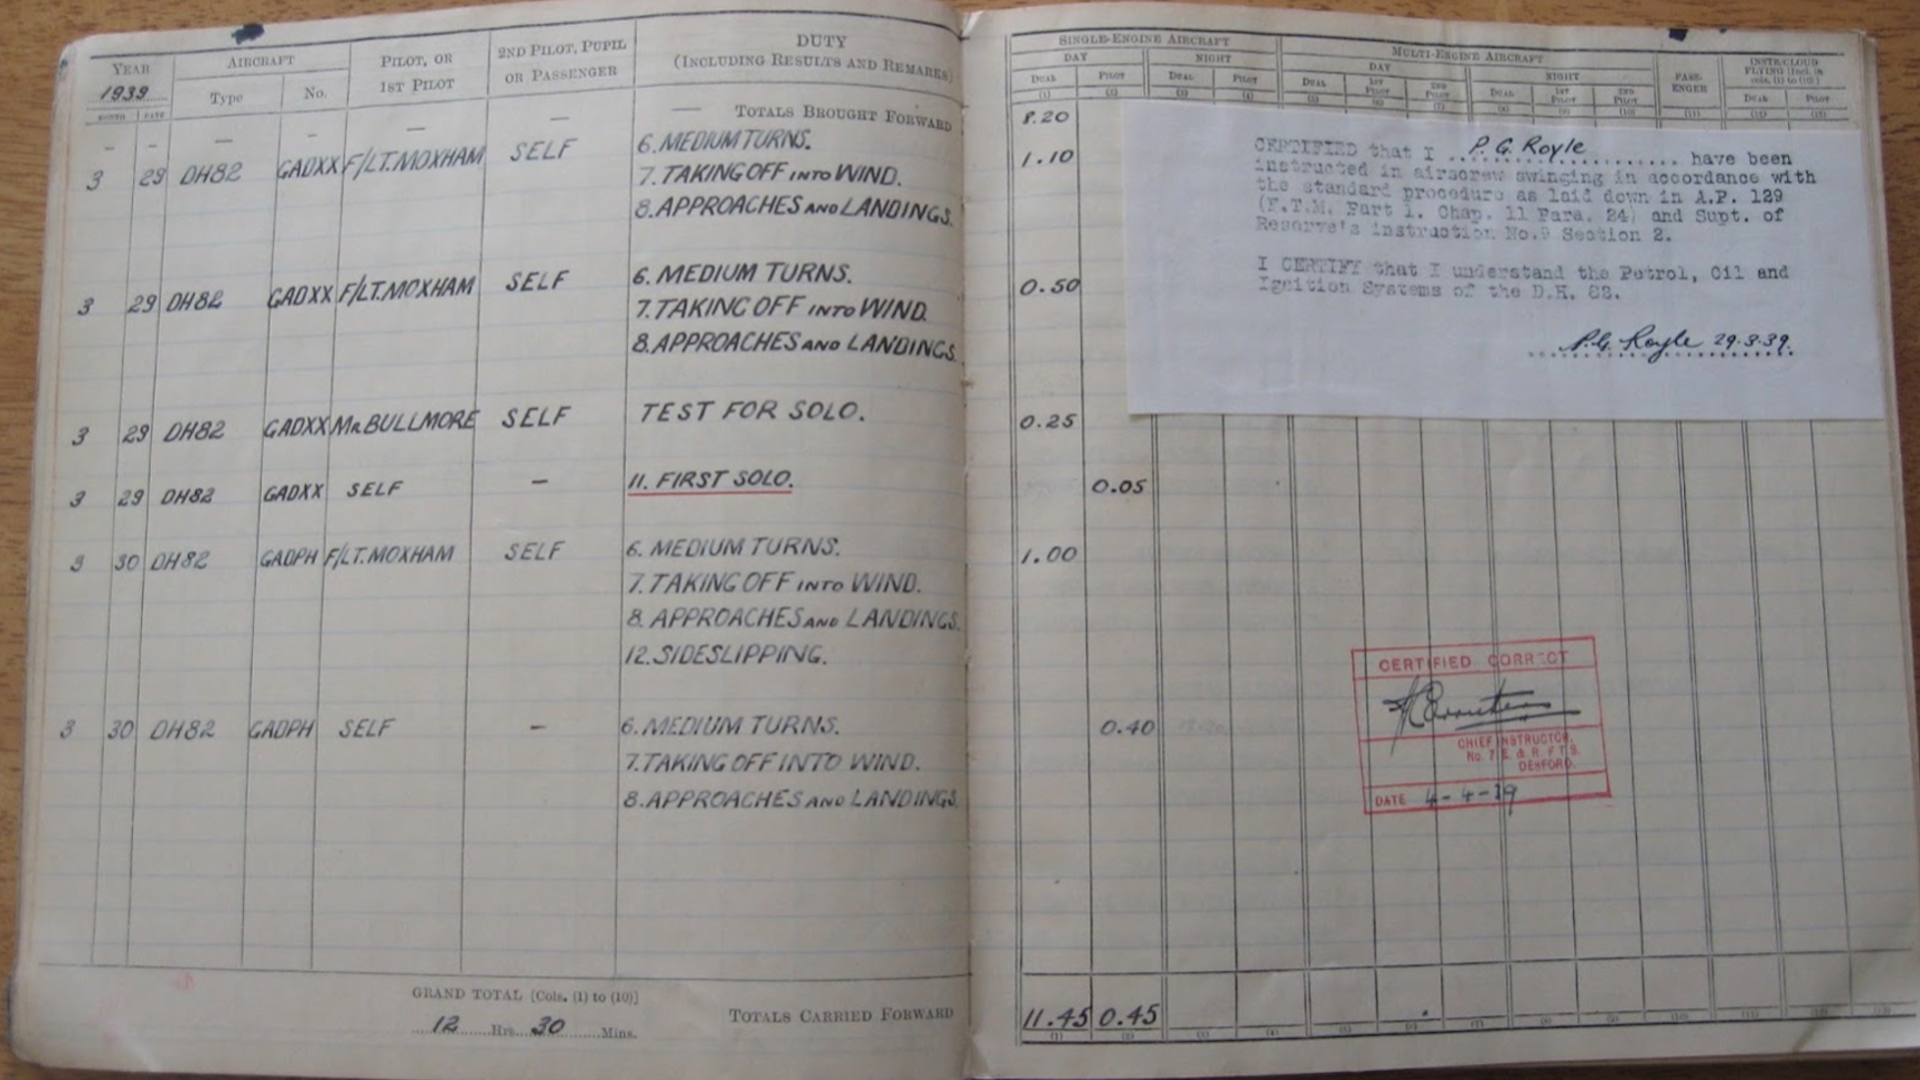 YEAR 1939 AIRCRAFT PILOT, OR 1ST PILOT 2ND PILOT, PUPIL OR PASSENGER DUTY (INCLUDING RESULTS AND REMARKS)
MONTH DATE Type No.
— — — — — — — TOTALS BROUGHT FORWARD
3 29 DH82 GADXX F/LT. MOXHAM SELF 6. MEDIUM TURNS.
7. TAKING OFF INTO WIND.
8. APPROACHES AND LANDINGS.
3 29 DH82 GADXX F/LT. MOXHAM SELF 6. MEDIUM TURNS.
7. TAKING OFF INTO WIND.
8. APPROACHES AND LANDINGS.
3 29 DH82 GADXX MR BULLMORE SELF TEST FOR SOLO.
3 29 DH82 GADXX SELF — 11. FIRST SOLO.
3 30 DH82 GADPH F/LT. MOXHAM SELF 6. MEDIUM TURNS.
7. TAKING OFF INTO WIND.
8. APPROACHES AND LANDINGS.
12. SIDESLIPPING.
3 30 DH82 GADPH SELF — 6. MEDIUM TURNS.
7. TAKING OFF INTO WIND.
8. APPROACHES AND LANDINGS.
GRAND TOTAL [Cols. (1) to (10)]
12 Hrs. 30 Mins.
TOTALS CARRIED FORWARD
SINGLE-ENGINE AIRCRAFT MULTI-ENGINE AIRCRAFT PASSENGER INSTR/CLOUD FLYING [Incl. in cols. (1) to (10)]
DAY NIGHT DAY NIGHT
DUAL PILOT DUAL PILOT DUAL 1ST PILOT 2ND PILOT DUAL 1ST PILOT 2ND PILOT DUAL PILOT
(1) (2) (3) (4) (5) (6) (7) (8) (9) (10) (11) (12) (13)
8.20
1.10
0.50
0.25
0.05
1.00
0.40
11.45 0.45
CERTIFIED that I P. G. Royle have been
instructed in airscrew swinging in accordance with
the standard procedure as laid down in A.P. 129
(F.T.M. Part 1. Chap. 11 Para. 24) and Supt. of
Reserve's instruction No.9 Section 2.
I CERTIFY that I understand the Petrol, Oil and
Ignition Systems of the D.H. 82.
P.G. Royle 29.3.39.
CERTIFIED CORRECT
CHIEF INSTRUCTOR,
No. 7 E. & R. F.T.S.
DESFORD.
DATE 4-4-39